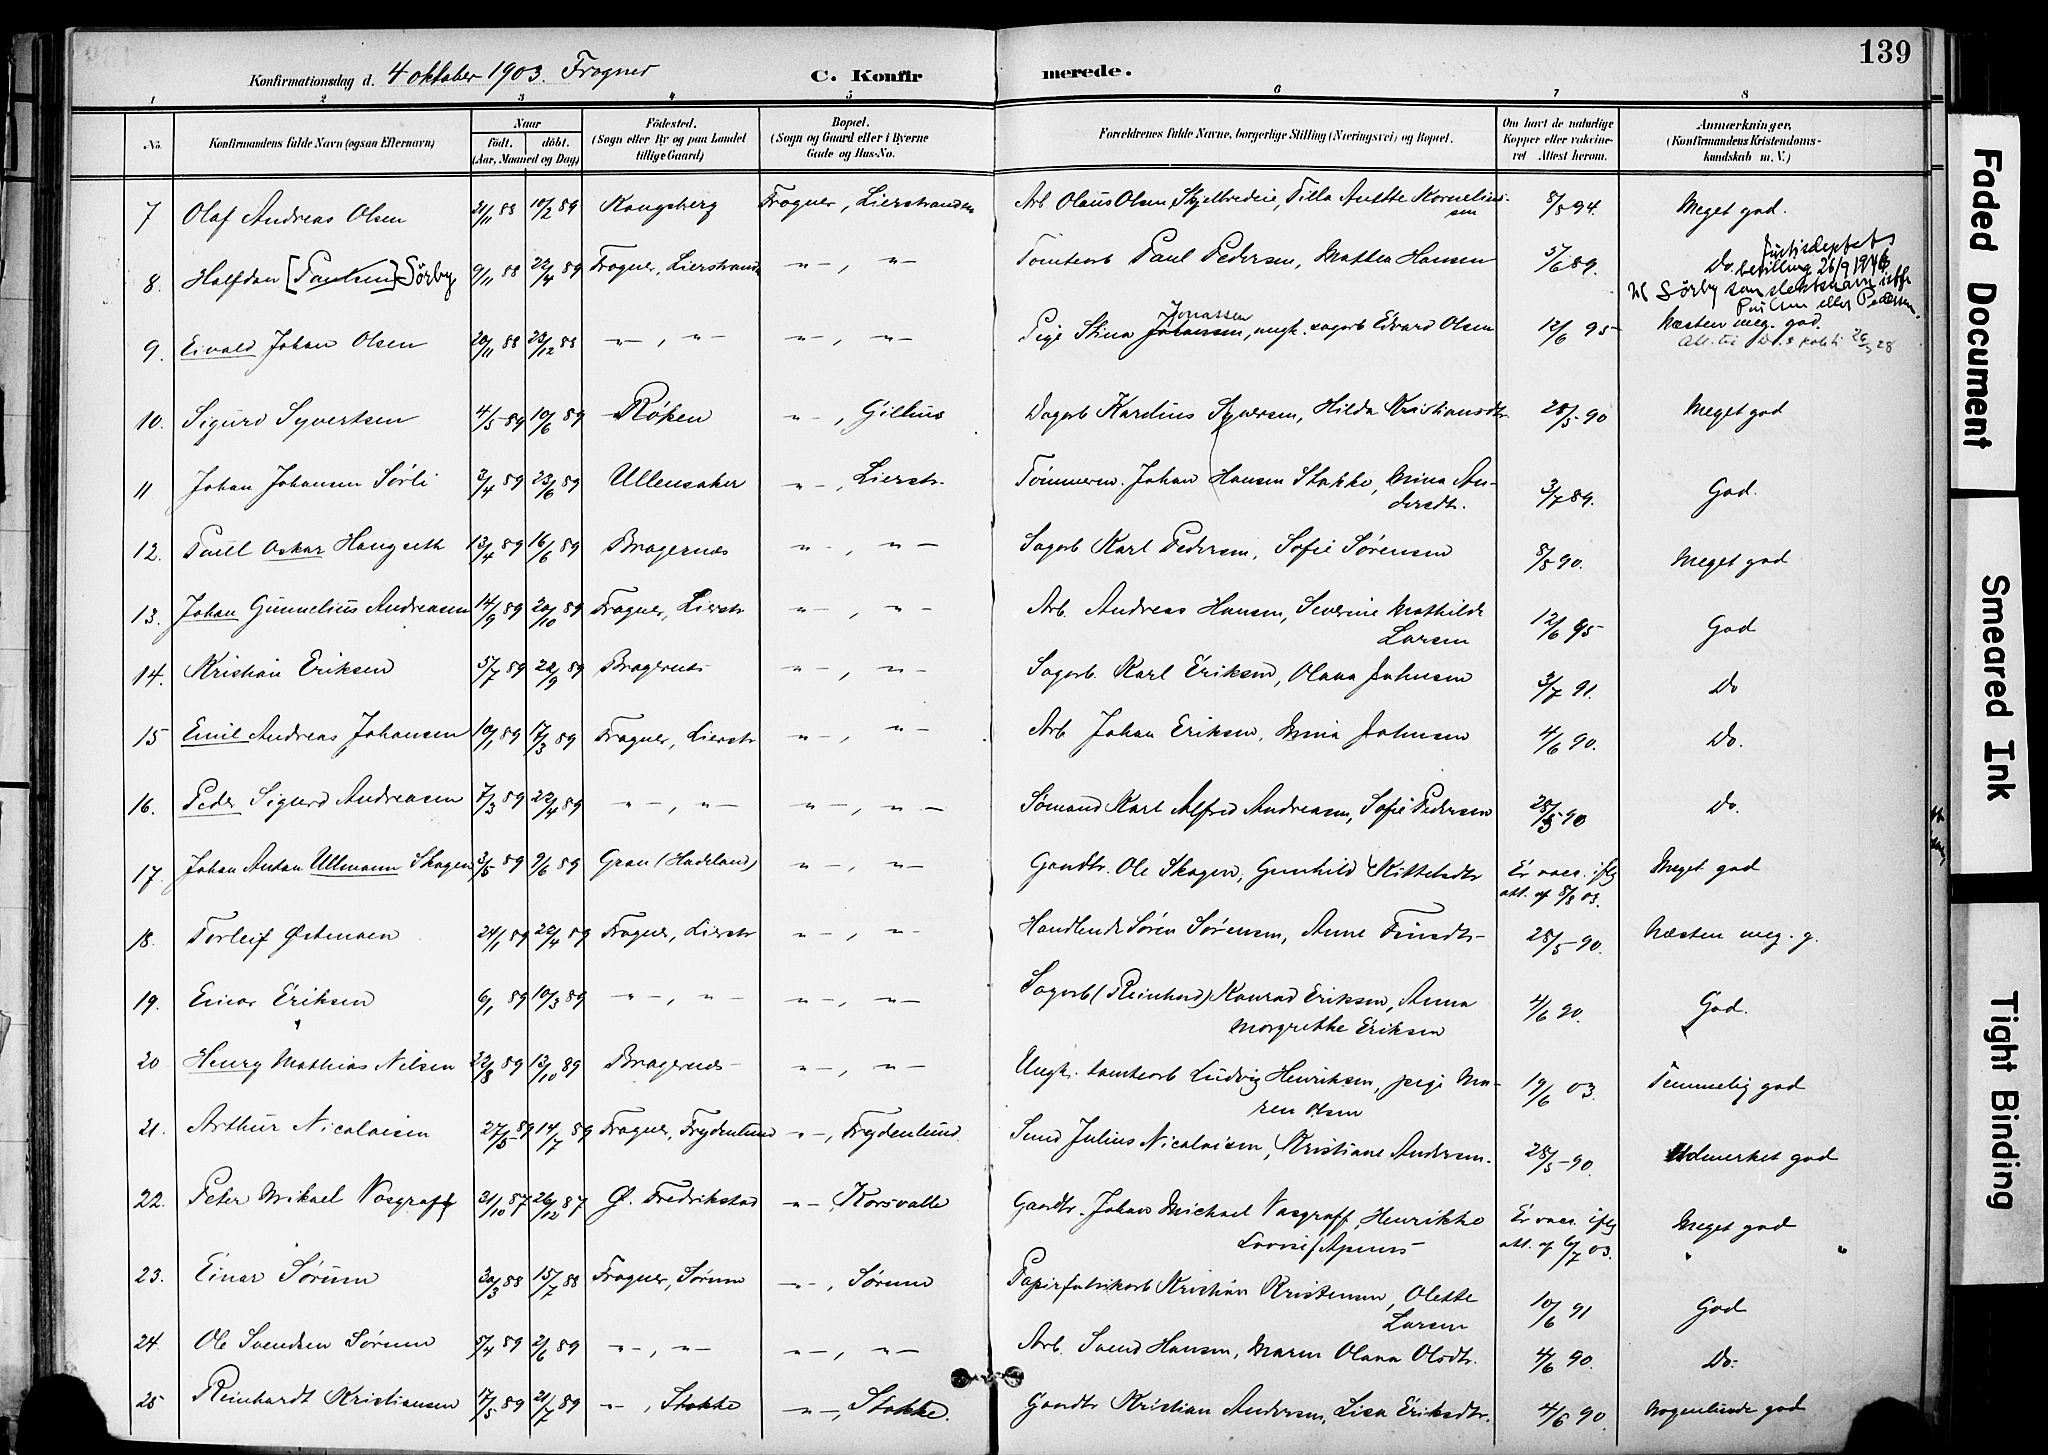 139
Konfirmationsdag d. 4 oktober 1903. Frogner C. Konfirmerede.
1 2 3 4 5 6 7 8
No. Konfirmandens fulde Navn (ogsaa Efternavn) Naar født. døbt. (Aar, Maaned og Dag) Fødested. (Sogn eller By og paa Landet tillige Gaard) Bopæl. (Sogn og Gaard eller i Byerne Gade og Hus-No. Forældrenes fulde Navne, borgerlige Stilling (Næringsvei) og Bopæl. Om havt de naturlige Kopper eller vaccineret Attest herom. Anmærkninger, (Konfirmandens Kristendomskundskab m. V.)
7 Olaf Andreas Olsen 21/11 88 10/2 89 Kongsberg Frogner, Lierstranden Arb. Olaus Olsen Skjelbredeie, Tilla Anette Korneliussen 8/5 94. Meget god.
8. Halfdan [Paulsen] Sörby 9/11 88 22/4 89 Frogner, Lierstrand -"-, -"- Tomtearb Paul Pedersen, Mathea Hansen 5/6 89. Do. Justisdeptets bevilling 26/9 1946 til Sörby som slektsnavn istf. Paulsen eller Pedersen.
9. Eivald Johan Olsen 20/11 88 23/12 88 -"-, -"- -"-, -"- Pige Stina Johansen Jonassen, ungk. sagarb Edvard Olsen 12/6 95 Næsten meg. god.
10. Sigurd Syvertsen 4/5 89 10/6 89 Röken -"-, Gilhus Dagarb Karelius Syversen, Hilda Kristiansdtr 28/5 90 Meget god
11 Johan Johansen Sørli 3/4 89 23/6 89 Ullensaker -"-, Lierstr. Tømmerm. Johan Hansen Stokke, Mina Andersdtr. 3/7 89. God.
12. Paul Oskar Haugseth 13/4 89 16/6 89 Bragernæs -"-, -"- Sagarb Karl Pedersen, Sofie Sørensen 8/5 90. Meget god
13. Johan Gunnelius Andreasen 14/9 89 20/10 89 Frogner, Lierstr -"-, -"- Arb. Andreas Hansen, Severine Mathilde Larsen 12/6 95 God
14. Kristian Eriksen 5/7 89 22/9 89 Bragernes -"-, -"- Sagarb. Karl Eriksen, Olava Johnsen 3/7 91. Do
15 Emil Andreas Johansen 10/1 89 17/3 89 Frogner, Lierstr -"-, -"- Arb Johan Eriksen, Mina Johnsen 4/6 90. Do.
16. Peder Sigurd Andreasen 7/3 89 22/4 89 -"-, -"- -"-, -"- Sømand Karl Alfred Andreasen, Sofie Pedersen 28/5 90 Do.
17. Johan Anton Ullmann Skogen 3/5 89 9/6 89 Gran (Hadeland) -"-, -"- Gaardbr. Ole Skogen, Gunhild Kittelsdtr Er vacc. iflg att. af 8/8 03. Meget god
18. Torleif Østmoen 24/1 89 22/4 89 Frogner, Lierstr -"-, -"- Handlende Søren Sørensen, Anne Finsdtr 28/5 90. Næsten meg. g.
19. Einar Eriksen 6/1 89 10/3 89 -"-, -"- -"-, -"- Sagarb (Reinhard) Konrad Eriksen, Anna Margrethe Eriksen 4/6 90. God.
20 Henry Mathias Nilsen 22/8 89 13/10 89 Bragernes -"-, -"- Ungk. tomtearb Ludvig Henriksen, pige Maren Olsen 19/6 03. Temmelig god
21. Arthur Nicolaisen 27/5 89 14/7 89 Frogner, Frydenlund -"-, Frydenlund. Smed Julius Nicolaisen, Kristiane Andersen. 28/5 90. Udmerket god
22. Peter Mikael Vosgraff 31/10 87 26/12 87 Ø. Fredrikstad -"-, Korsvalle Gaardbr. Johan Michael Vosgraff, Henrikke Lovise Apenes Er vacc. iflg att. af 6/7 03. Meget god
23. Einar Sörum 30/3 88 15/7 88 Frogner, Sörum -"-, Sörum Papirfabrikarb Kristian Kristensen, Olette Larsen 10/6 91 God
24. Ole Svendsen Sörum 5/4 89 2/6 89 -"-, -"- -"-, -"- Arb. Svend Hansen, Maren Olava Olsdtr. 4/6 90. Do.
25 Reinhardt Kristiansen 17/5 89 21/7 89 -"-, Stokke -"-, Stokke. Gaardbr Kristian Andersen, Lisa Eriksdtr. 4/6 90 Nogenlunde god
Faded Document
Smeared Ink
Tight Binding